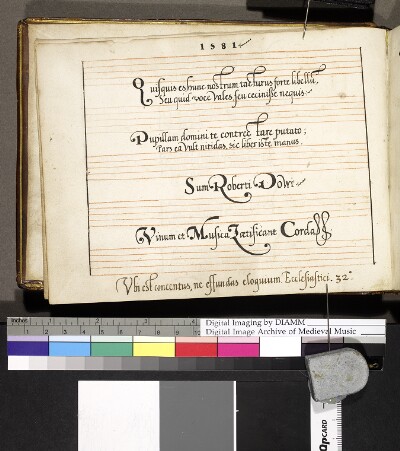 1581
Quisquis es hunc nostrum tacturus forte libellū,
Seu quid voce vales, seu cecinisse nequis.
Pupillam domini te contrectare putato;
Pars ea vult nitidas, sic liber iste manus.
Sum Roberti Dowi
Vinum et Musica Lætificant Corda
Vbi est concentus, ne effundas eloquium. Ecclesiastici. 32.
inches 1 2 3 4 5 6 7 8 9 10
Digital Imaging by DIAMM
Digital Image Archive of Medieval Music
QpCARD